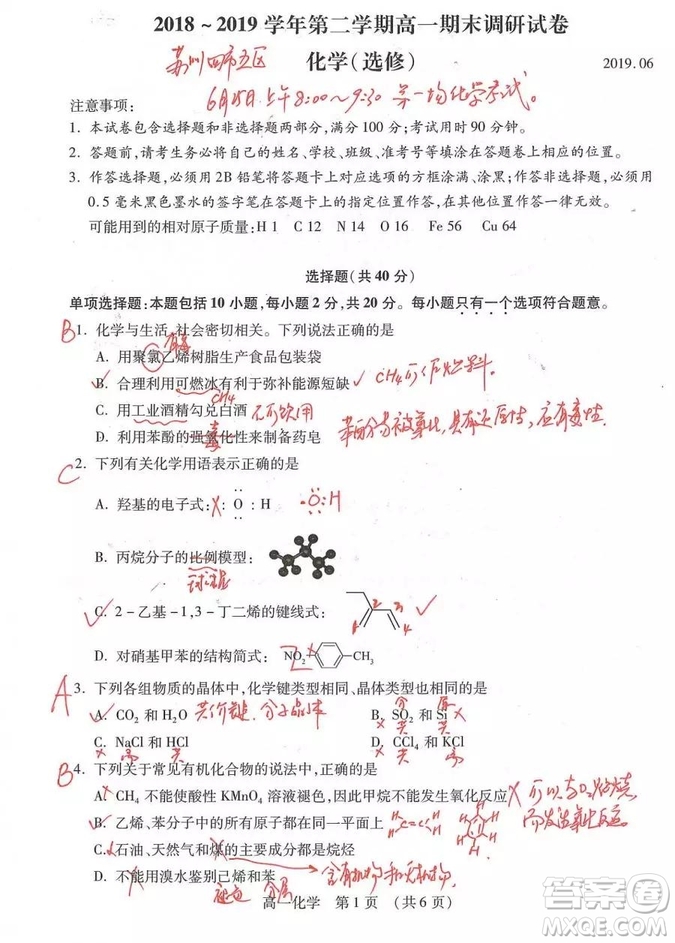 2018～2019 学年第二学期高一期末调研试卷
苏州四市五区
化学(选修)
2019.06
6月25日上午8:00～9:30 第一场化学考试。
注意事项：
1. 本试卷包含选择题和非选择题两部分,满分 100 分;考试用时 90 分钟。
2. 答题前,请考生务必将自己的姓名、学校、班级、准考号等填涂在答题卷上相应的位置。
3. 作答选择题,必须用 2B 铅笔将答题卡上对应选项的方框涂满、涂黑;作答非选择题,必须用
0.5 毫米黑色墨水的签字笔在答题卡上的指定位置作答,在其他位置作答一律无效。
可能用到的相对原子质量: H 1 C 12 N 14 O 16 Fe 56 Cu 64
选择题(共 40 分)
单项选择题:本题包括 10 小题,每小题 2 分,共 20 分。每小题只有一个选项符合题意。
B 1. 化学与生活、社会密切相关。下列说法正确的是
有毒
A. 用聚氯乙烯树脂生产食品包装袋
B. 合理利用可燃冰有利于弥补能源短缺 CH4可作燃料.
CH4
C. 用工业酒精勾兑白酒 不可饮用
D. 利用苯酚的强氧化性来制备药皂 苯酚易被氧化,具有还原性,应有毒性.
毒
C 2. 下列有关化学用语表示正确的是
A. 羟基的电子式: : O : H ·O:H
B. 丙烷分子的比例模型:
球棍
C. 2－乙基－1,3－丁二烯的键线式: 1 2 3 4
D. 对硝基甲苯的结构简式: NO2 CH3
A 3. 下列各组物质的晶体中,化学键类型相同、晶体类型也相同的是
A. CO2 和 H2O 共价键、分子晶体 B. SO2 和 Si
分 原
C. NaCl 和 HCl D. CCl4 和 KCl
离 共 共 离
B 4. 下列关于常见有机化合物的说法中,正确的是
A. CH4 不能使酸性 KMnO4 溶液褪色,因此甲烷不能发生氧化反应 可以与O2燃烧
而发生氧化反应
B. 乙烯、苯分子中的所有原子都在同一平面上 H C=C H
C. 石油、天然气和煤的主要成分都是烷烃
含有机物和无机物
D. 不能用溴水鉴别己烯和苯
高一化学 第 1 页 (共 6 页)
答案圈
MXQE.COM